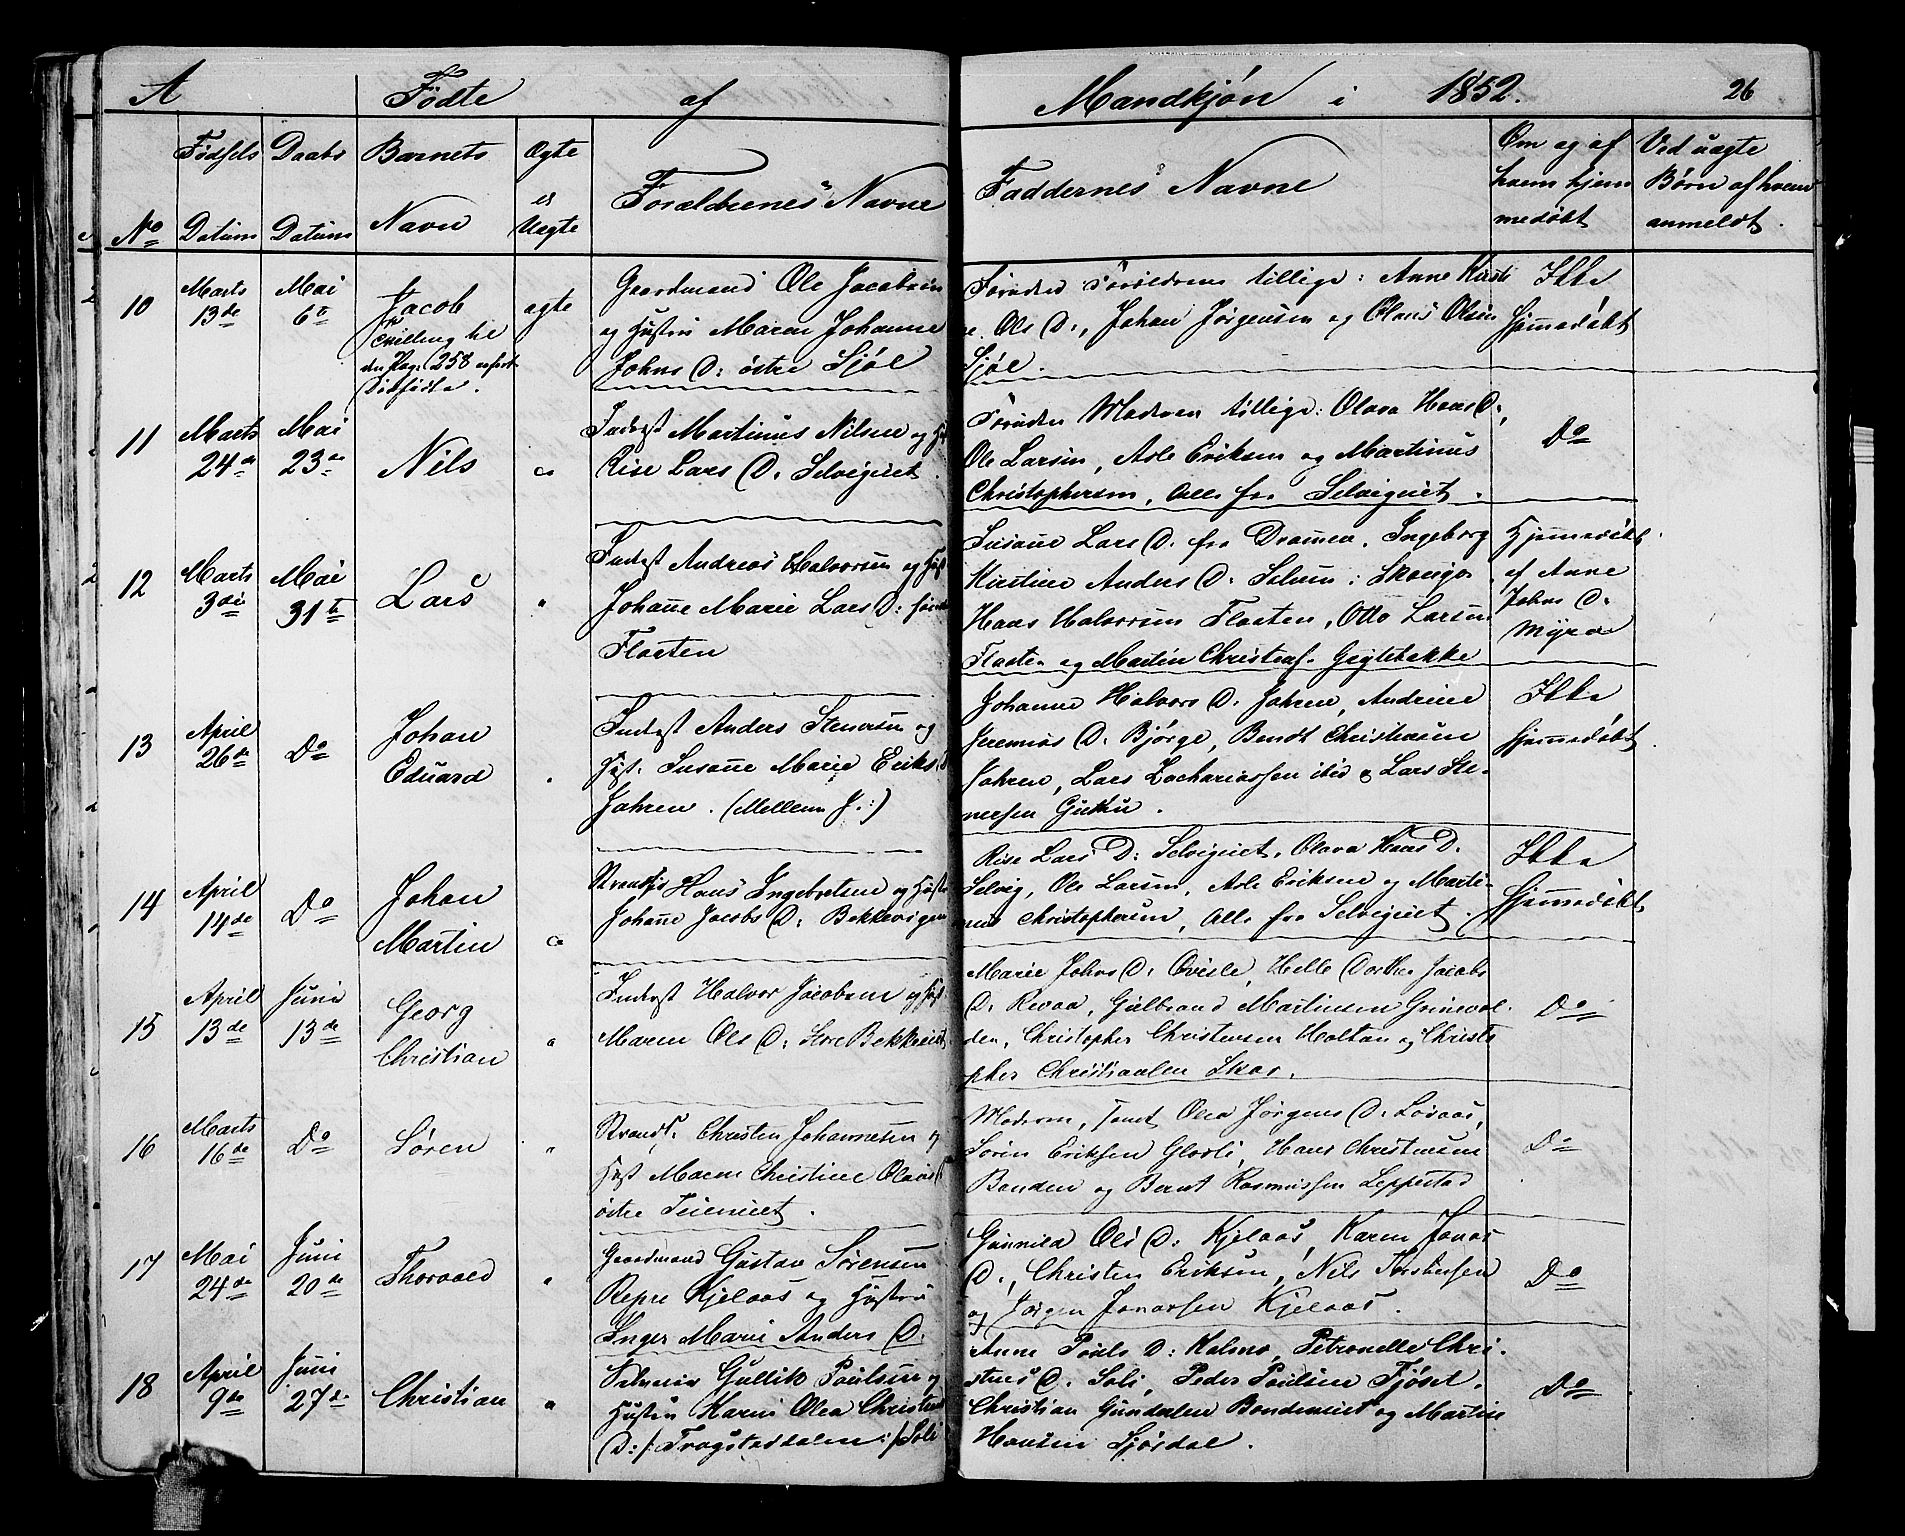 A Fødte af Mandkjøn i 1852. 26
No
Fødsels Datum
Daabs Datum
Barnets Navn
Ægte el Uægte
Forældrenes Navne
Faddernes Navne
Om og af hvem hjemmedøbt
Ved uægte Børn af hvem anmeldt.
10
Marts 13de
Mai 6te
Jacob
Tvilling til
den Pag. 258
ægte
Gaardmand Ole Jacobsen
og Hustru Maren Johanne
Johns D: østre Sjøl
Foruden Forældrene tillige: Anne Kirsti-
ne Ols D., Johan Jørgensen og Olaus Olsen
Sjøl.
Ikke
hjemmedøbt
11
Marts 24de
Mai 23de
Nils
Inderst Martinus Nilsen og
Rise Lars D. Selvigeiet.
Foruden Moderen tillige: Olava Hans D.,
Ole Larsen, Asle Eriksen og Martinus
Christophersen, Alle fra Selvigeiet.
Do
12
Marts 3die
Mai 31te
Lars
Inderst Andreas Halvorsen og
Johanne Marie Lars D:
Flaaten
Susanne Lars D. fra Drammen, Ingeborg
Kirstine Anders D.
Hans Halvorsen Flaaten, Otto Larsen
Flaaten og Martin
Hjemmedøbt
af Anne
Johns D.
Myra
13
April 26de
Do
Johan
Eduard
Inderst Anders Stenersen og
Hust. Susanne Marie Eriks D
Jahren. (Mellem J.:)
Johanne Halvors D. Jahren, Andrine
Jeremias D. Bjørge, Bendt Christiansen
Jahren, Lars Zachariassen ibid & Lars Ste-
nersen
Ikke
hjemmedøbt
14
April 14de
Do
Johan
Martin
Hans Ingebretsen og
Johanne Jacobs D: Bekkevigen
Rise Lars D: Selvigeiet, Olava Hans D.
Selvig, Ole Larsen, Asle Eriksen og Marti-
nus Christophersen, Alle fra Selvigeiet.
Ikke
hjemmedøbt
15
April 13de
Juni 13de
Georg
Christian
Inderst Halvor Jacobsen og
Maren Ols D: Store Bakkeeiet
Marie Johns D. Helle Dorthea Jacobs
D. Revaa, Gulbrand Martinsen Grinevol-
den, Christopher Christensen Holtan og Christo-
pher Christiansen Skar.
Do
16
Marts 16de
Do
Søren
Christen Johannesen og
Hust Maren Christine Olaus D
østre Teieneiet.
Moderen, samt Olea Jørgens D. Løvaas,
Søren Eriksen Hans Christensen
Bonden og Bernt Rasmussen Leppestad
Do
17
Mai 24de
Juni 20de
Thorvald
Gaardmand Gustav Sørensen
Repre Kjelaas og Hustru
Inger Marie Anders D.
Gunnild Ols D: Kjelaas, Karen Jonas
D., Christen Eriksen, Nils Torstensen
og Jørgen Jonassen Kjelaas.
Do
18
April 9de
Juni 27de
Christian
Gullik Poulsen og
Hustru Karen Olea Christens
D: /: :/ Soli
Anne Pouls D: Holmo, Petronelle Chri-
stens D. Soli, Peder Poulsen Fjøset.
Christian Gundersen Bondeneiet og Martin
Hansen Sjørdal.
Do